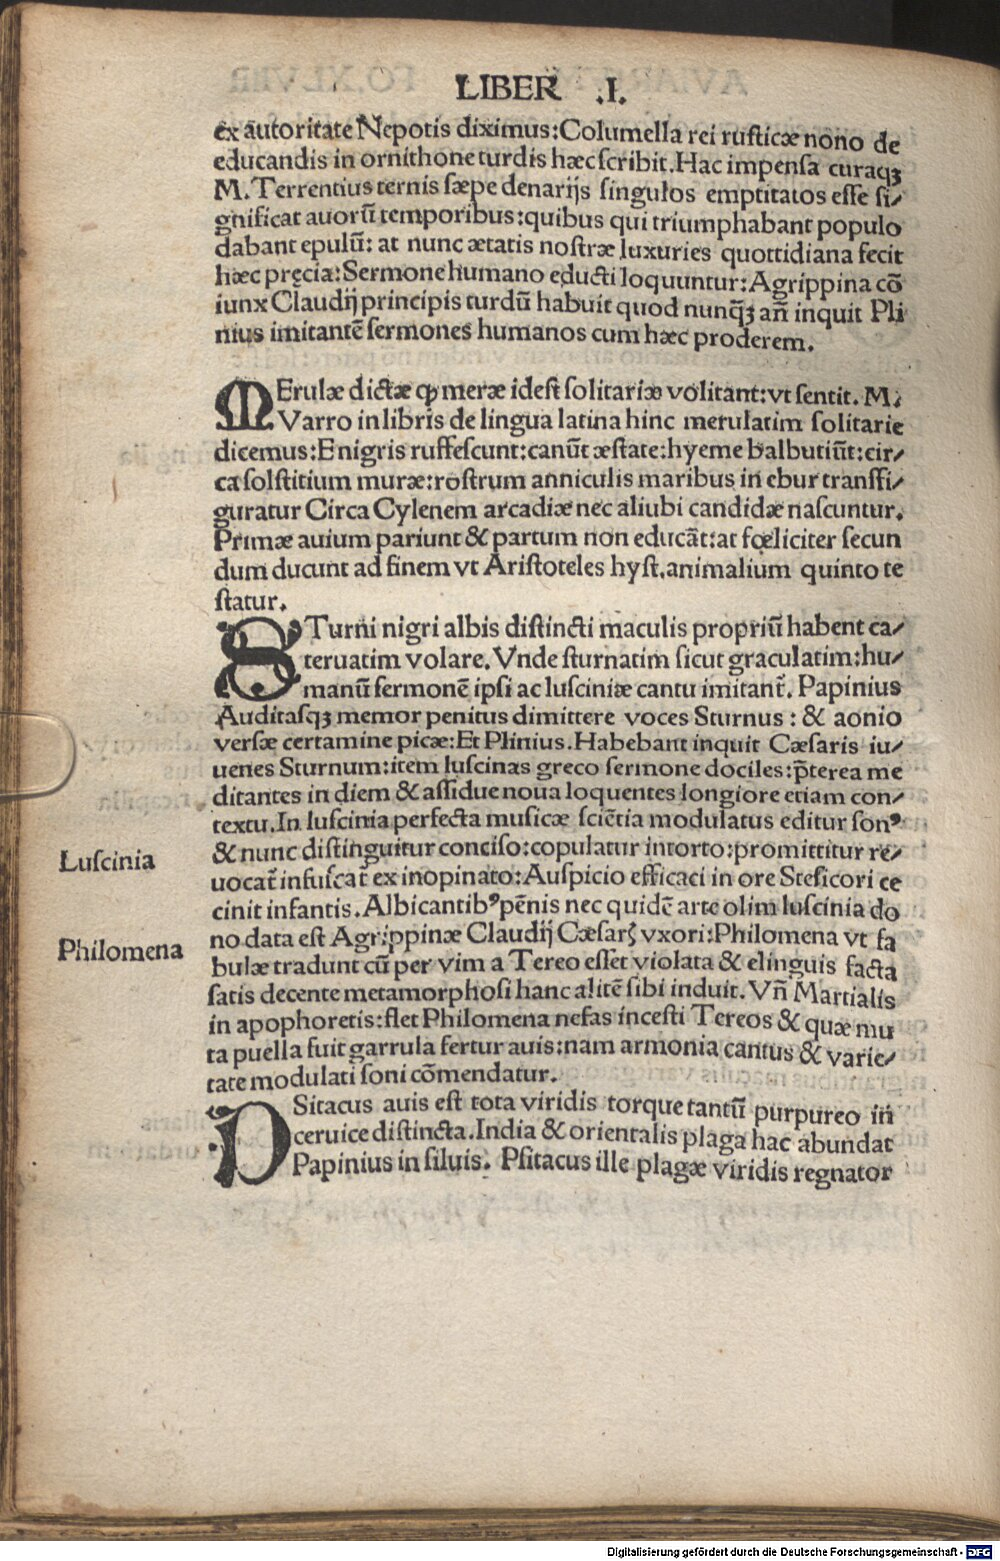 LIBER .I.
ex autoritate Nepotis diximus:Columella rei rusticæ nono de
educandis in ornithone turdis hæc scribit.Hac impensa curaqꝫ
M.Terrentius ternis sæpe denarijs singulos emptitatos esse si/
gnificat auorū temporibus:quibus qui triumphabant populo
dabant epulū: at nunc ætatis nostræ luxuries quottidiana fecit
hæc pręcia:Sermone humano educti loquuntur:Agrippina cō
iunx Claudij principis turdū habuit quod nunqꝫ an̄ inquit Pli
nius imitantē sermones humanos cum hæc proderem.
MErulæ dictæ ꝙ meræ idest solitariæ volitant:vt sentit.M.
Varro in libris de lingua latina hinc merulatim solitarie
dicemus:E nigris ruffescunt:canūt æstate:hyeme balbutiūt:cir/
ca solstitium muræ:rostrum anniculis maribus in ebur transfi/
guratur Circa Cylenem arcadiæ nec aliubi candidæ nascuntur.
Primæ auium pariunt & partum non educāt:at fœliciter secun
dum ducunt ad finem vt Aristoteles hyst.animalium quinto te
statur.
STurni nigri albis distincti maculis propriū habent ca/
teruatim volare.Vnde sturnatim sicut graculatim:hu/
manū sermonē ipsi ac lusciniæ cantu imitant̄. Papinius
Auditasqꝫ memor penitus dimittere voces Sturnus : & aonio
versæ certamine picæ:Et Plinius.Habebant inquit Cæsaris iu/
uenes Sturnum:item luscinas greco sermone dociles:p̄terea me
ditantes in diem & assidue noua loquentes longiore etiam con/
textu.In luscinia perfecta musicæ sciētia modulatus editur sonꝰ
& nunc distinguitur conciso:copulatur intorto:promittitur re/
uocat̄ infuscat̄ ex inopinato:Auspicio efficaci in ore Stesicori ce
cinit infantis.Albicantibꝰ pēnis nec quidē arte olim luscinia do
no data est Agrippinæ Claudij Cæsarꝭ vxori:Philomena vt fa
bulæ tradunt cū per vim a Tereo esset violata & elinguis facta
satis decente metamorphosi hanc alitē sibi induit.Vn̄ Martialis
in apophoretis:flet Philomena nefas incesti Tereos & quæ mu
ta puella fuit garrula fertur auis:nam armonia cantus & varie/
tate modulati soni cōmendatur.
PSitacus auis est tota viridis torque tantū purpureo in
ceruice distincta.India & orientalis plaga hac abundat
Papinius in siluis. Psitacus ille plagæ viridis regnator
Luscinia
Philomena
Digitalisierung gefördert durch die Deutsche Forschungsgemeinschaft - DFG